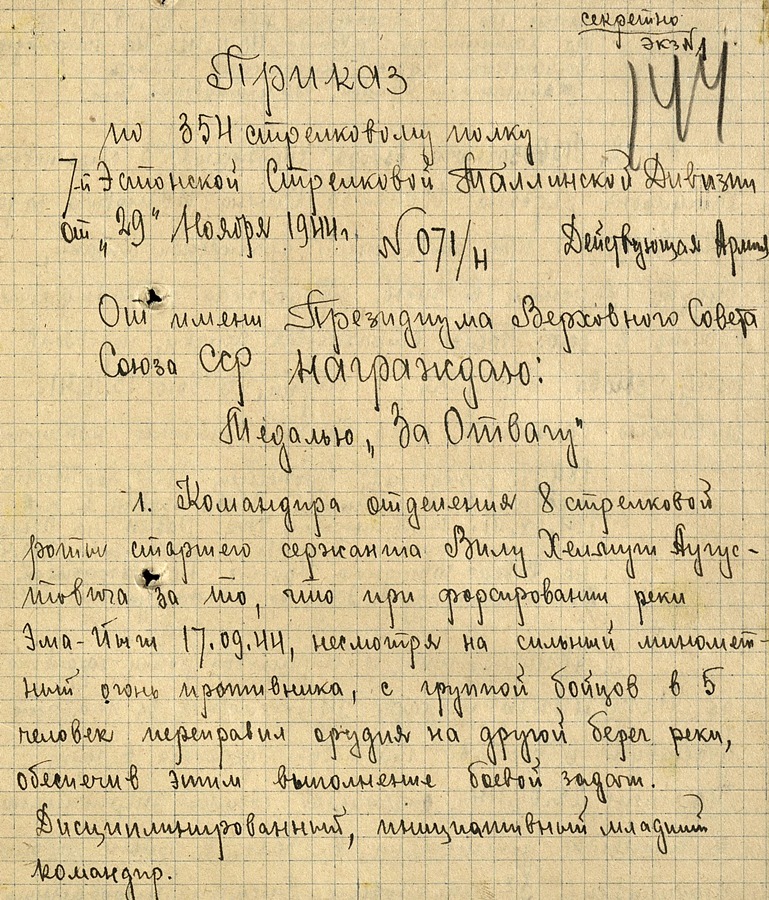 секретно
экз N 1
144
Приказ
по 354 стрелковому полку
7-й Эстонской Стрелковой Таллинской Дивизии
от „29" Ноября 1944г. N 071/н Действующая Армия
От имени Президиума Верховного Совета
Союза ССР награждаю:
Медалью „За Отвагу"
1. Командира отделения 8 стрелковой
роты старшего сержанта Вилу Хельмут Аугус-
товича за то, что при форсировании реки
Эма-Йыги 17.09.44, несмотря на сильный миномет-
ный огонь противника, с группой бойцов в 5
человек переправил орудия на другой берег реки,
обеспечив этим выполнение боевой задачи.
Дисциплинированный, инициативный младший
командир.